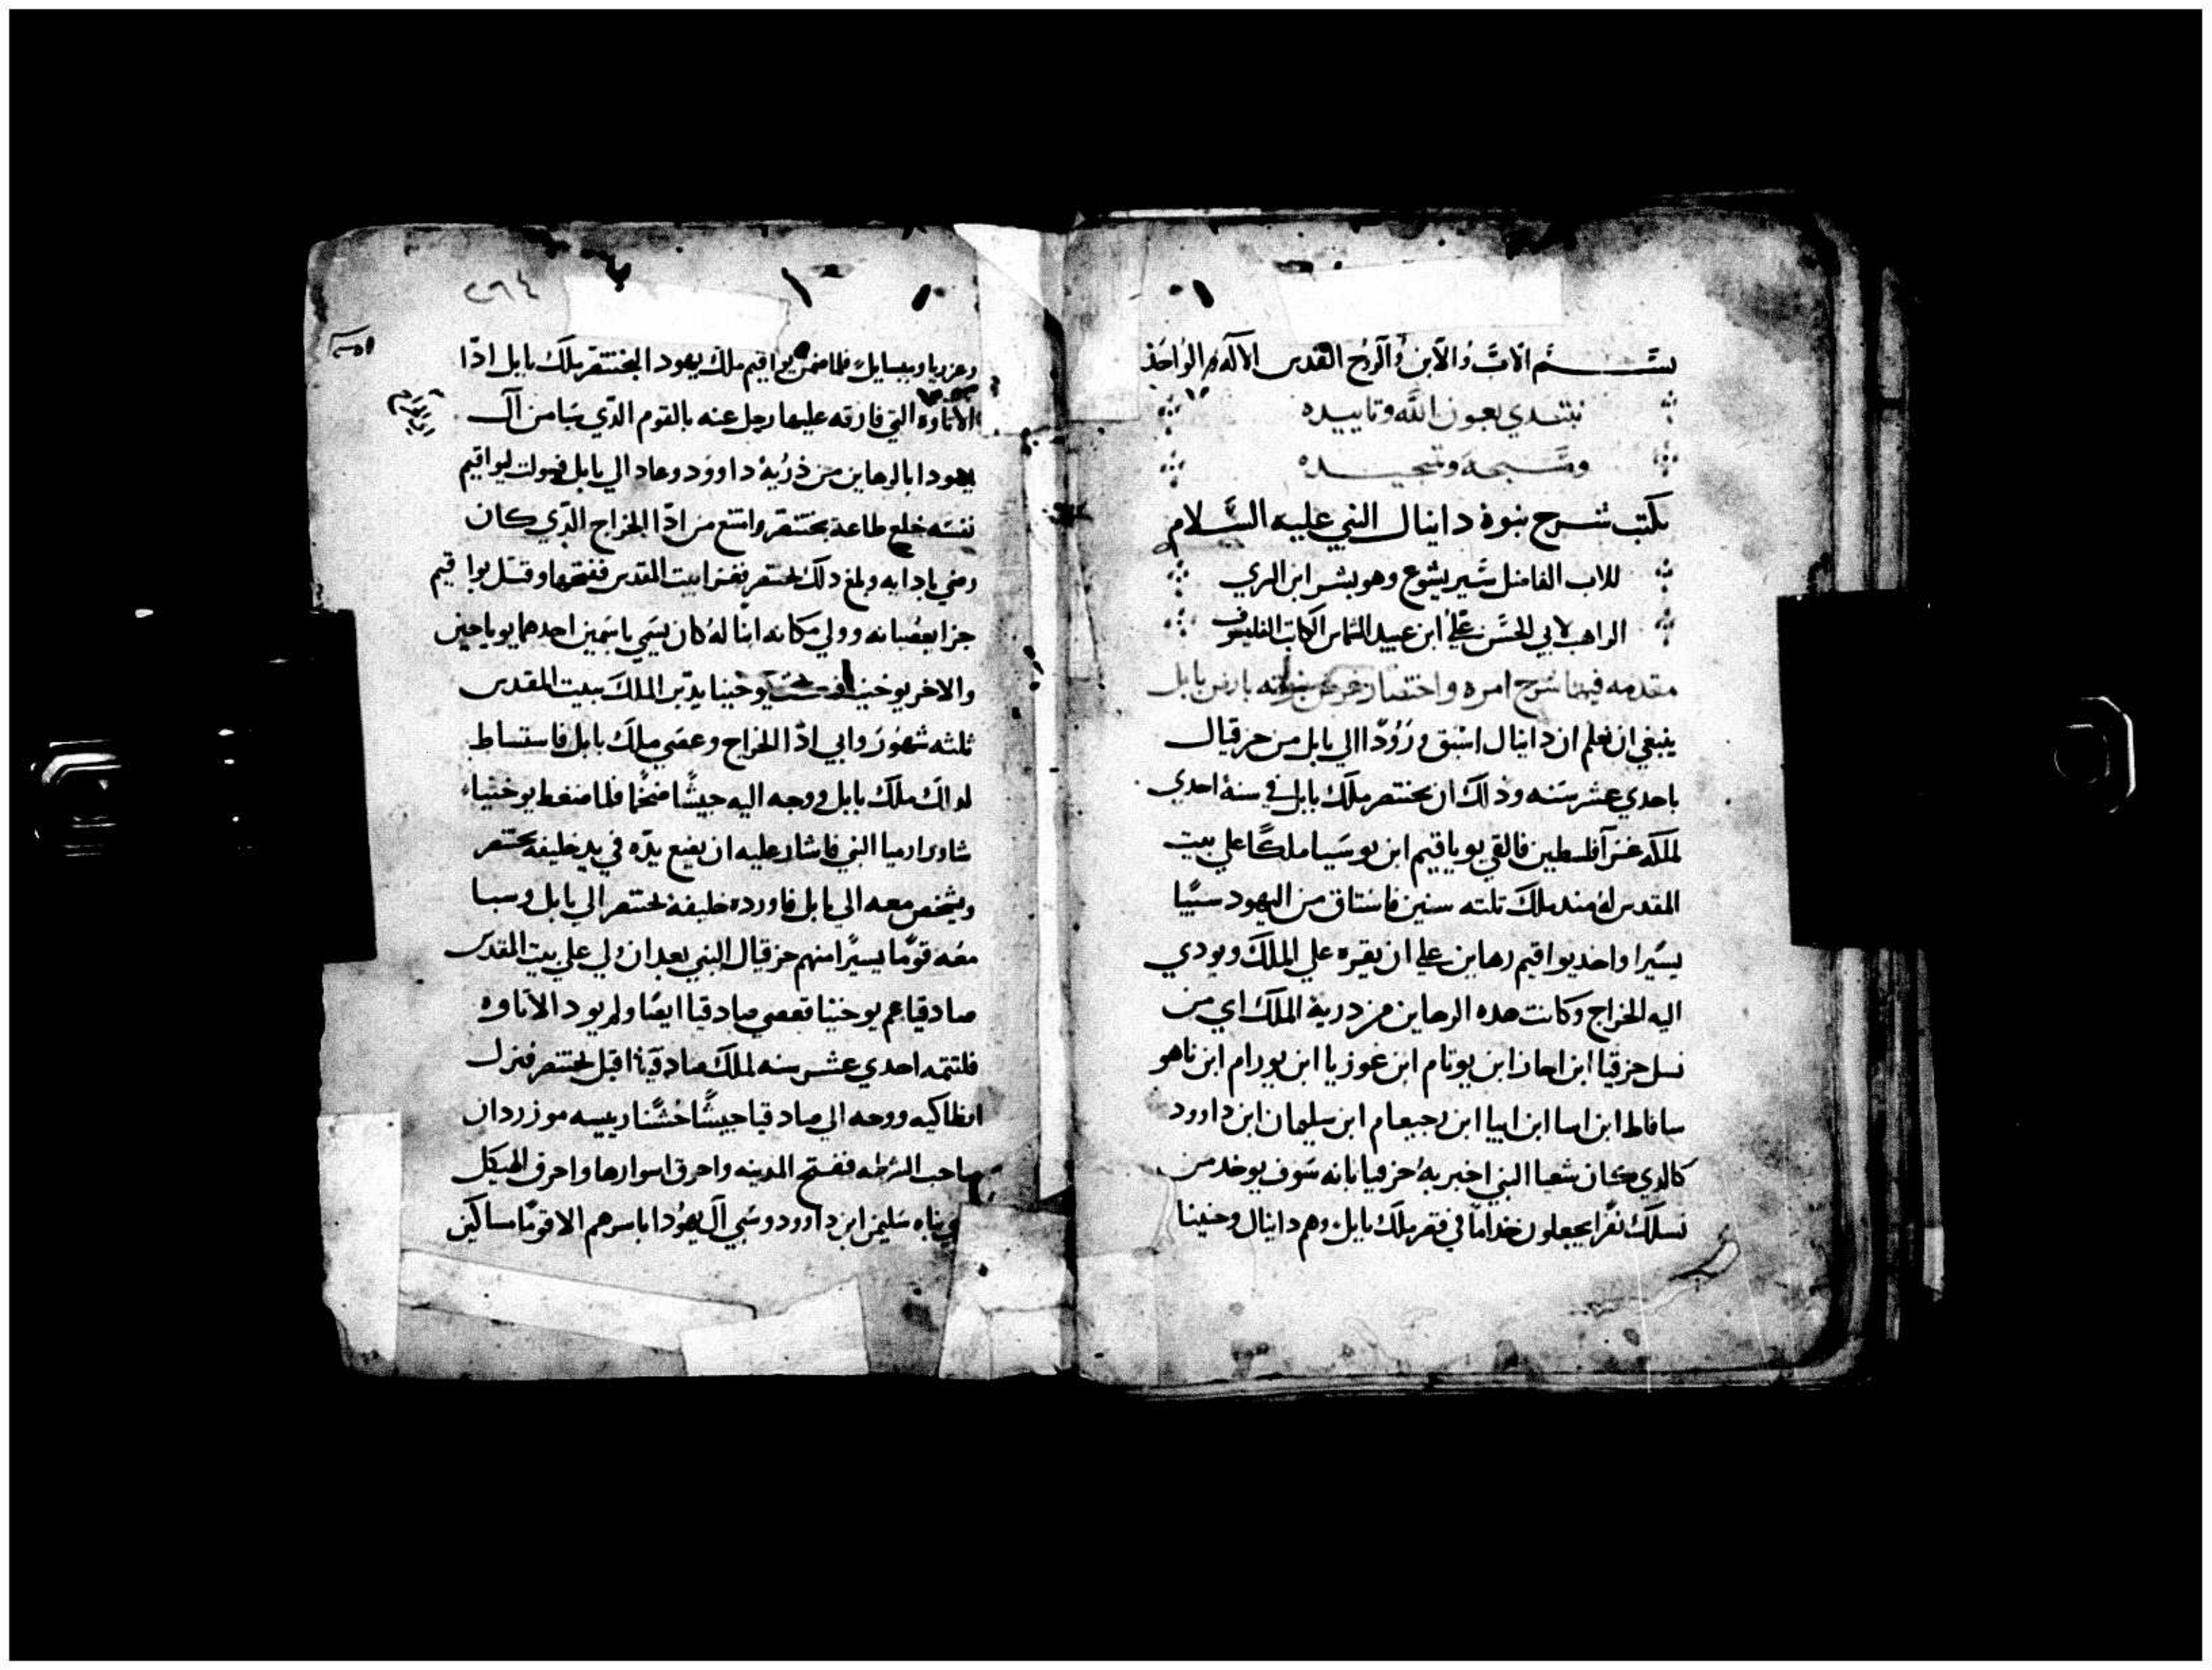 بسم الاب والابن والروح القدس الاله الواحد
نبتدي بعون الله وتاييده
نكتب شرح نبوة دانيال النبي عليه السلام
للاب الفاضل شير يشوع وهو بشر ابن السري
الراهب لابي الحسن علي ابن عبيد الشماس الكاتب الفليسوف
مقدمه فيها شرح امره واختصار بارض بابل
ينبغي ان نعلم ان دانيال اسبق ورودا الي بابل من حزقيال
باحدي عشر سنه وذلك ان بختنصر ملك بابل في سنة احدي
لملكه غزا فلسطين فالقي يوياقيم ابن يوسيا ملكا علي بيت
المقدس له مند ملك تلته سنين فاستاق من اليهود سبيا
يسيرا واخد يواقيم رهاين علي ان يقره علي الملك ويودي
اليه الخراج وكانت هده الرهاين من درية الملك اي من
نسل حزقيا ابن احاز ابن يوتام ابن غوزيا ابن يورام ابن ناهو
سافاط ابن اسا ابن ابيا ابن رجبعام ابن سليمان ابن داوود
كالدي كان شعيا النبي اخبر به حزقيا بانه سوف يوخد من
نسلك نفرا يجعلون خداما في قصر ملك بابل وهم دانيال وحنينا
٢٦٤
وعزريا وميسايل فلما ضمن يواقيم ملك يهودا لبختنصر ملك بابل ادا
الاتاوه التي فارقه عليها رحل عنه بالقوم الدي سبا من آل
يهودا بالرهاين من ذرية داوود وعاد الي بابل فسولت ليواقيم
نفسه خلع طاعة بختنصر وامتنع من ادا الخراج الدي كان
رضي بادايه وبلغ دلك بختنصر فغزا بيت المقدس ففتحها وقتل يواقيم
جزا بعصيانه وولي مكانه ابنا له كان يسمي باسمين احدهما يوياخين
والاخر يوخنيا يوخنيا يدبر الملك ببيت المقدس
ثلثه شهور وابي ادا الخراج وعصي ملك بابل فاستساط
لدلك ملك بابل ووجه اليه جيشا ضخما فلما ضغط يوخنيا
شاور ارميا النبي فاشار عليه ان يضع يده في يد خليفة بختنصر
ويشخص معه الي بابل فاورده خليفة بختنصر الي بابل وسبا
معه قوما يسيرا منهم حزقيال النبي بعد ان ولي علي بيت المقدس
صادقيا عم يوخنيا فعصي صادقيا ايضا ولم يود الاتاوه
فلتتمه احدي عشر سنه لملك صادقيا اقبل بختنصر فنزل
انطاكيه ووجه الي صادقيا جيشا خشنا رييسه موزردان
صاحب الشرطه ففتح المدينه واحرق اسوارها واحرق الهيكل
بناه سليمن ابن داوود وسبي آل يهودا باسرهم الا قوما مساكين